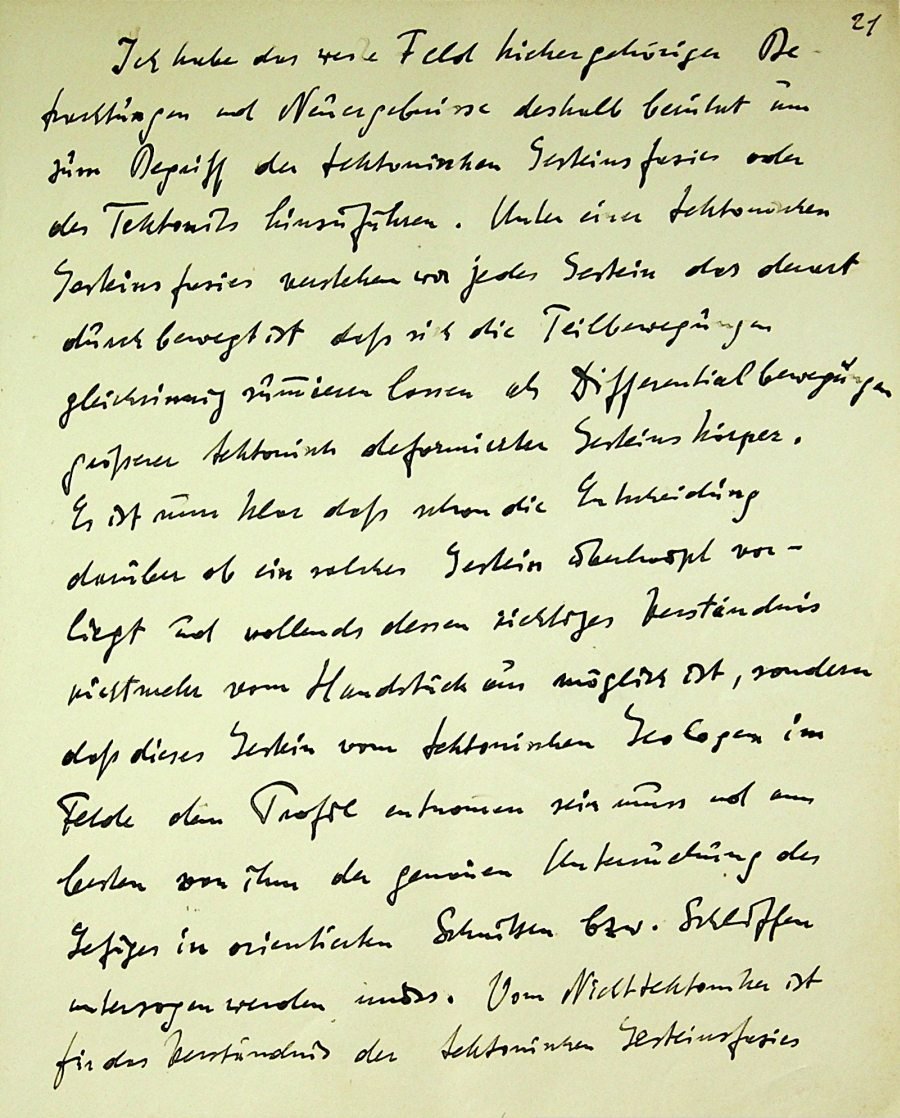 21
Ich habe das weite Feld hiehergehöriger Be-
trachtungen und Neuergebnisse deshalb berührt um
zum Begriff der tektonischen Gesteinsfazies oder
des Tektonits hinzuführen. Unter einer tektonischen
Gesteinsfazies verstehen wir jedes Gestein das derart
durchbewegt ist daß sich die Teilbewegungen
gleichsinnig summieren lassen als Differentialbewegungen
größerer tektonisch deformierter Gesteinskörper.
Es ist nun klar daß schon die Entscheidung
darüber ob ein solches Gestein überhaupt vor-
liegt und vollends dessen richtiges Verständnis
nicht mehr vom Handstück aus möglich ist, sondern
daß dieses Gestein vom tektonischen Geologen im
Felde dem Profil entnomen sein muss und am
besten von ihm der genauen Untersuchung des
Gefüges in orientierten Schnitten bzw. Schliffen
unterzogen werden muss. Vom Nichttektoniker ist
für das Verständnis der tektonischen Gesteinsfazies